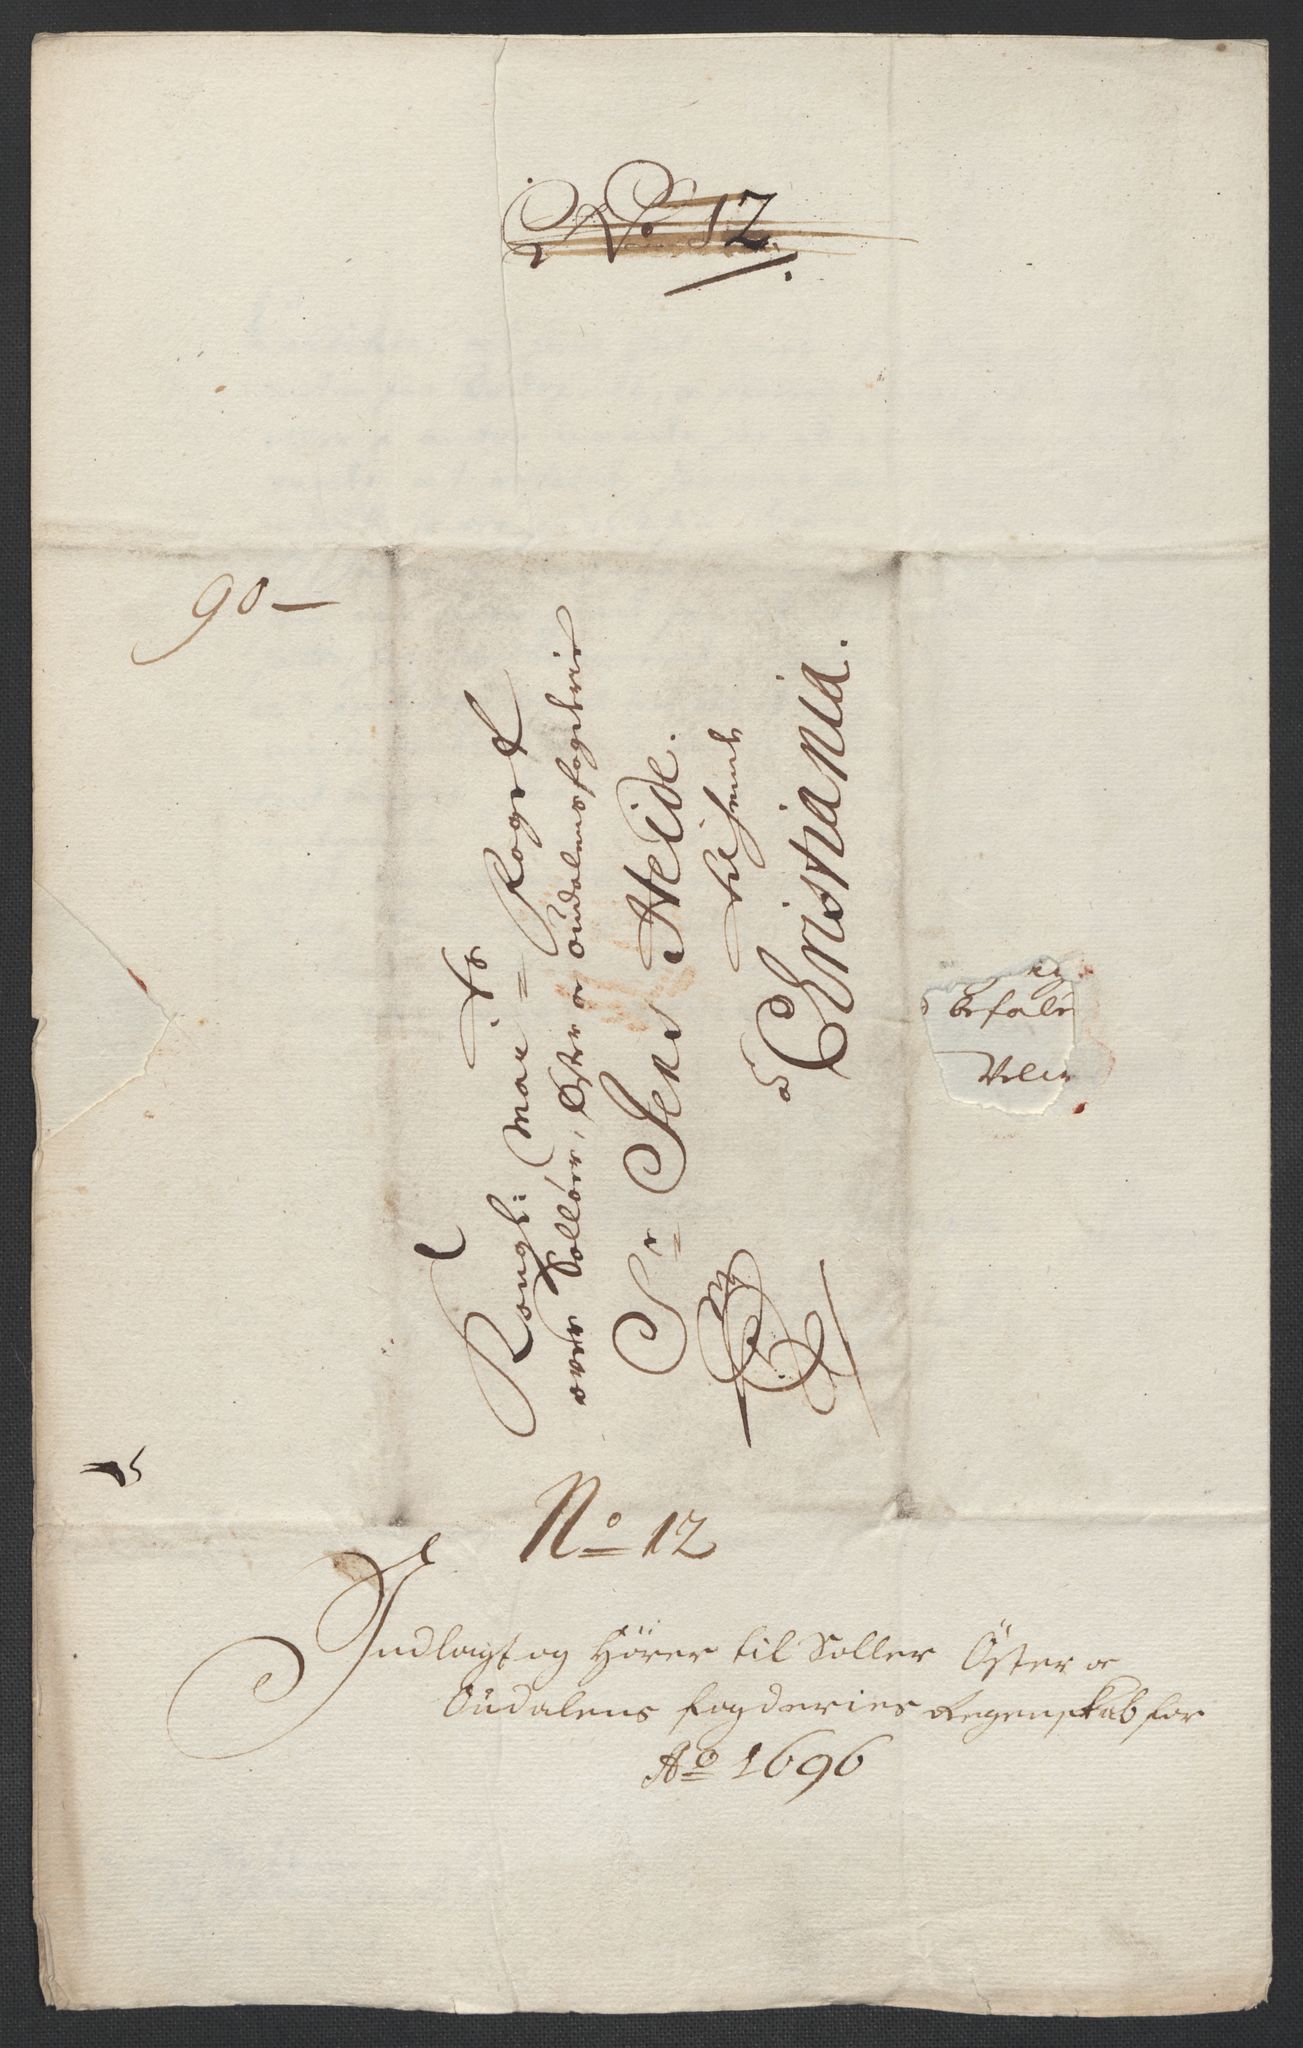 No 12
90 —
Kongl: May: tz Fogt
over Solløer, Øster oc Oudalens fogderie
Sr Jens Heide.
tilhende
â
Christiania.
befale
Velin
No 12
Indlagt og hörer til Soller Öster oc
Oüdalens fogderies Regenskab for
Ao 1696